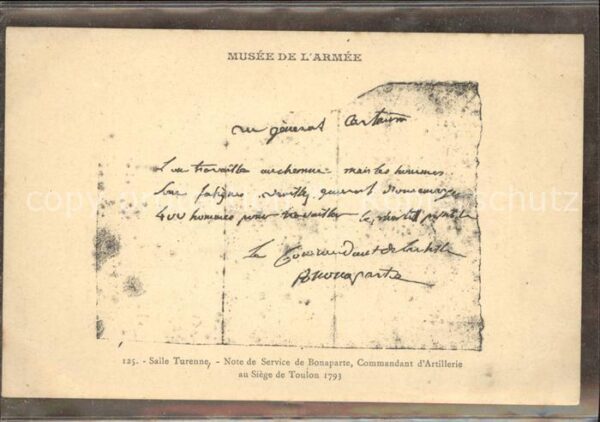 MUSÉE DE L'ARMÉE
au général Carteaux
L'on travaille au chemin mais les hommes
sont fatigués veuillez général nous envoyer
400 hommes pour travailler le
Le Commandant de l'artille
Buonaparte
125. - Salle Turenne, - Note de Service de Bonaparte, Commandant d'Artillerie
au Siège de Toulon 1793